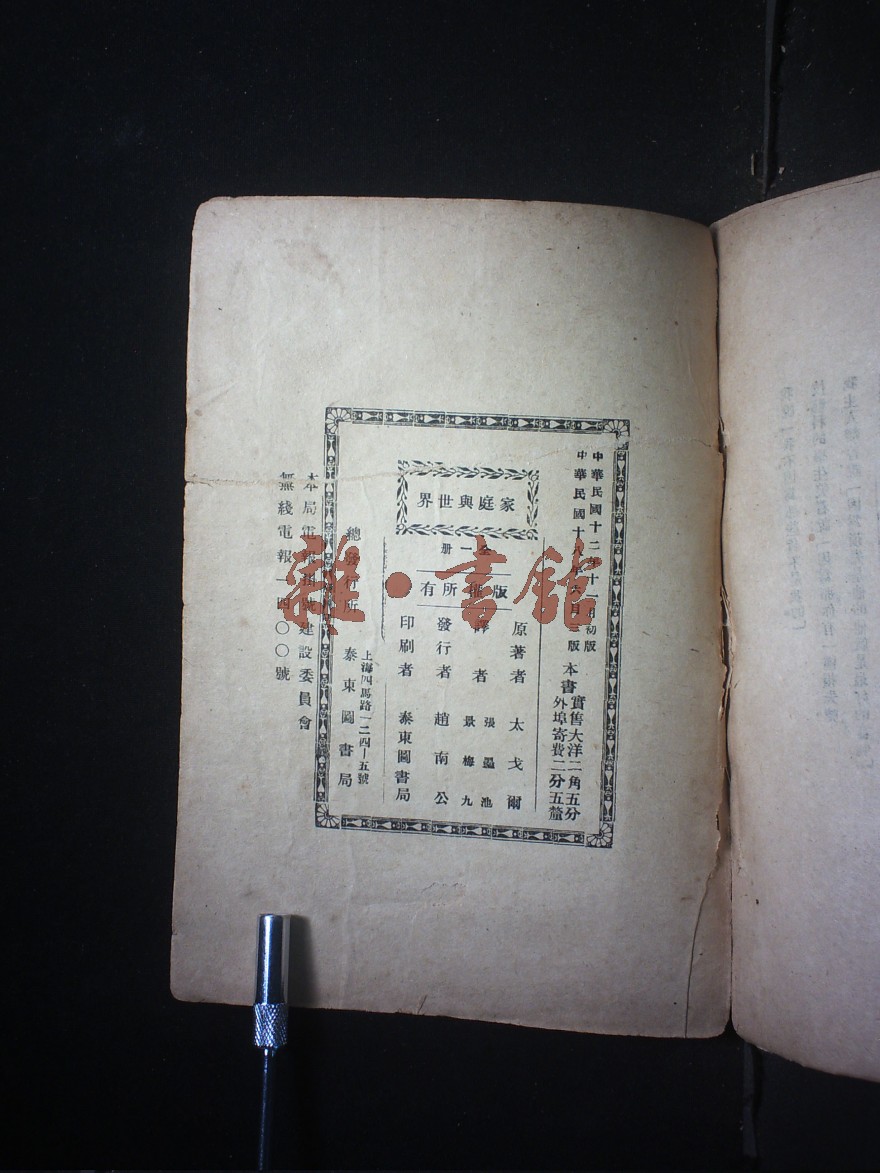 中華民國十二年十一月初版
中華民國十八年六月三版
本書實售大洋二角五分
外埠寄費二分五釐
家庭與世界
全一冊
版權所有
原著者 太戈爾
譯者 張墨池
景梅九
發行者 趙南公
印刷者 泰東圖書局
上海四馬路一二四—五號
總發行所 泰東圖書局
本局電報掛號建設委員會
無綫電報一四〇〇號
雜·書館